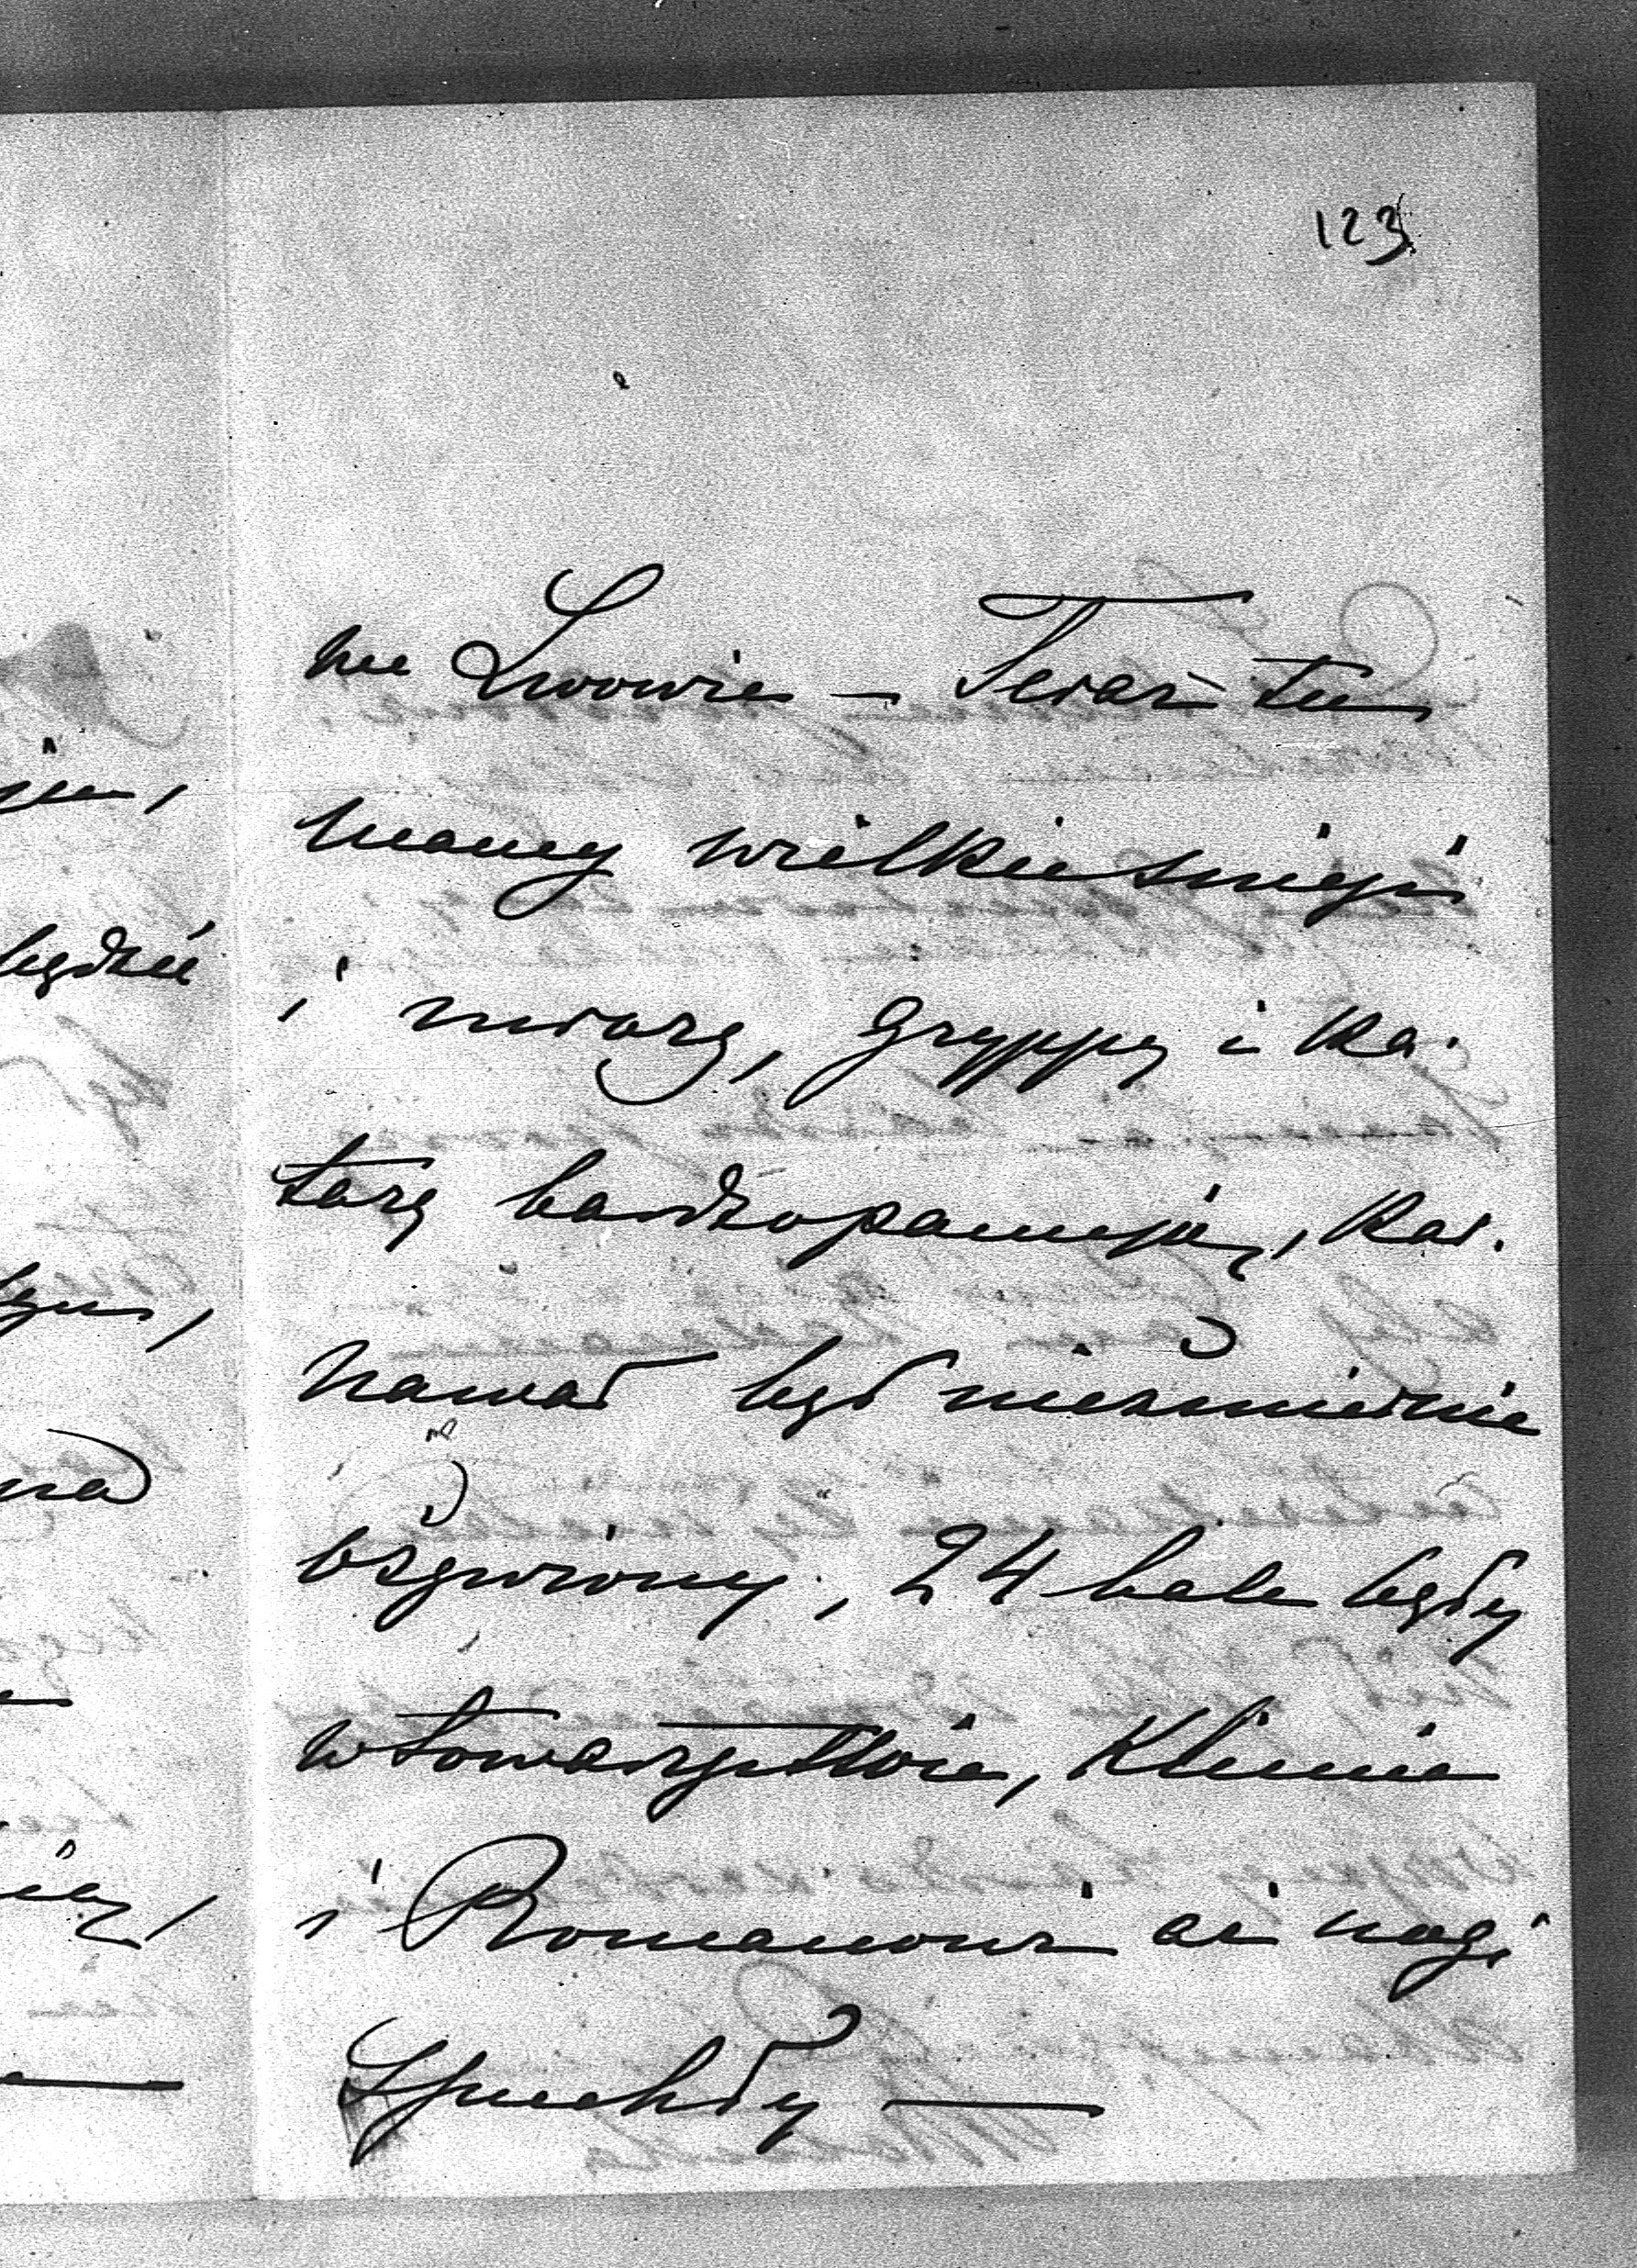 123
we Lwowie — Teraz tu
mamy wielkie śniegi
i mrozy, gryppy i ka-
tary bardzo panują, kar-
nawał był niezmiernie
ożywiony, 24 bale były
w towarzystwie, Klimie
i Romanowi aż nogi
spuchły —